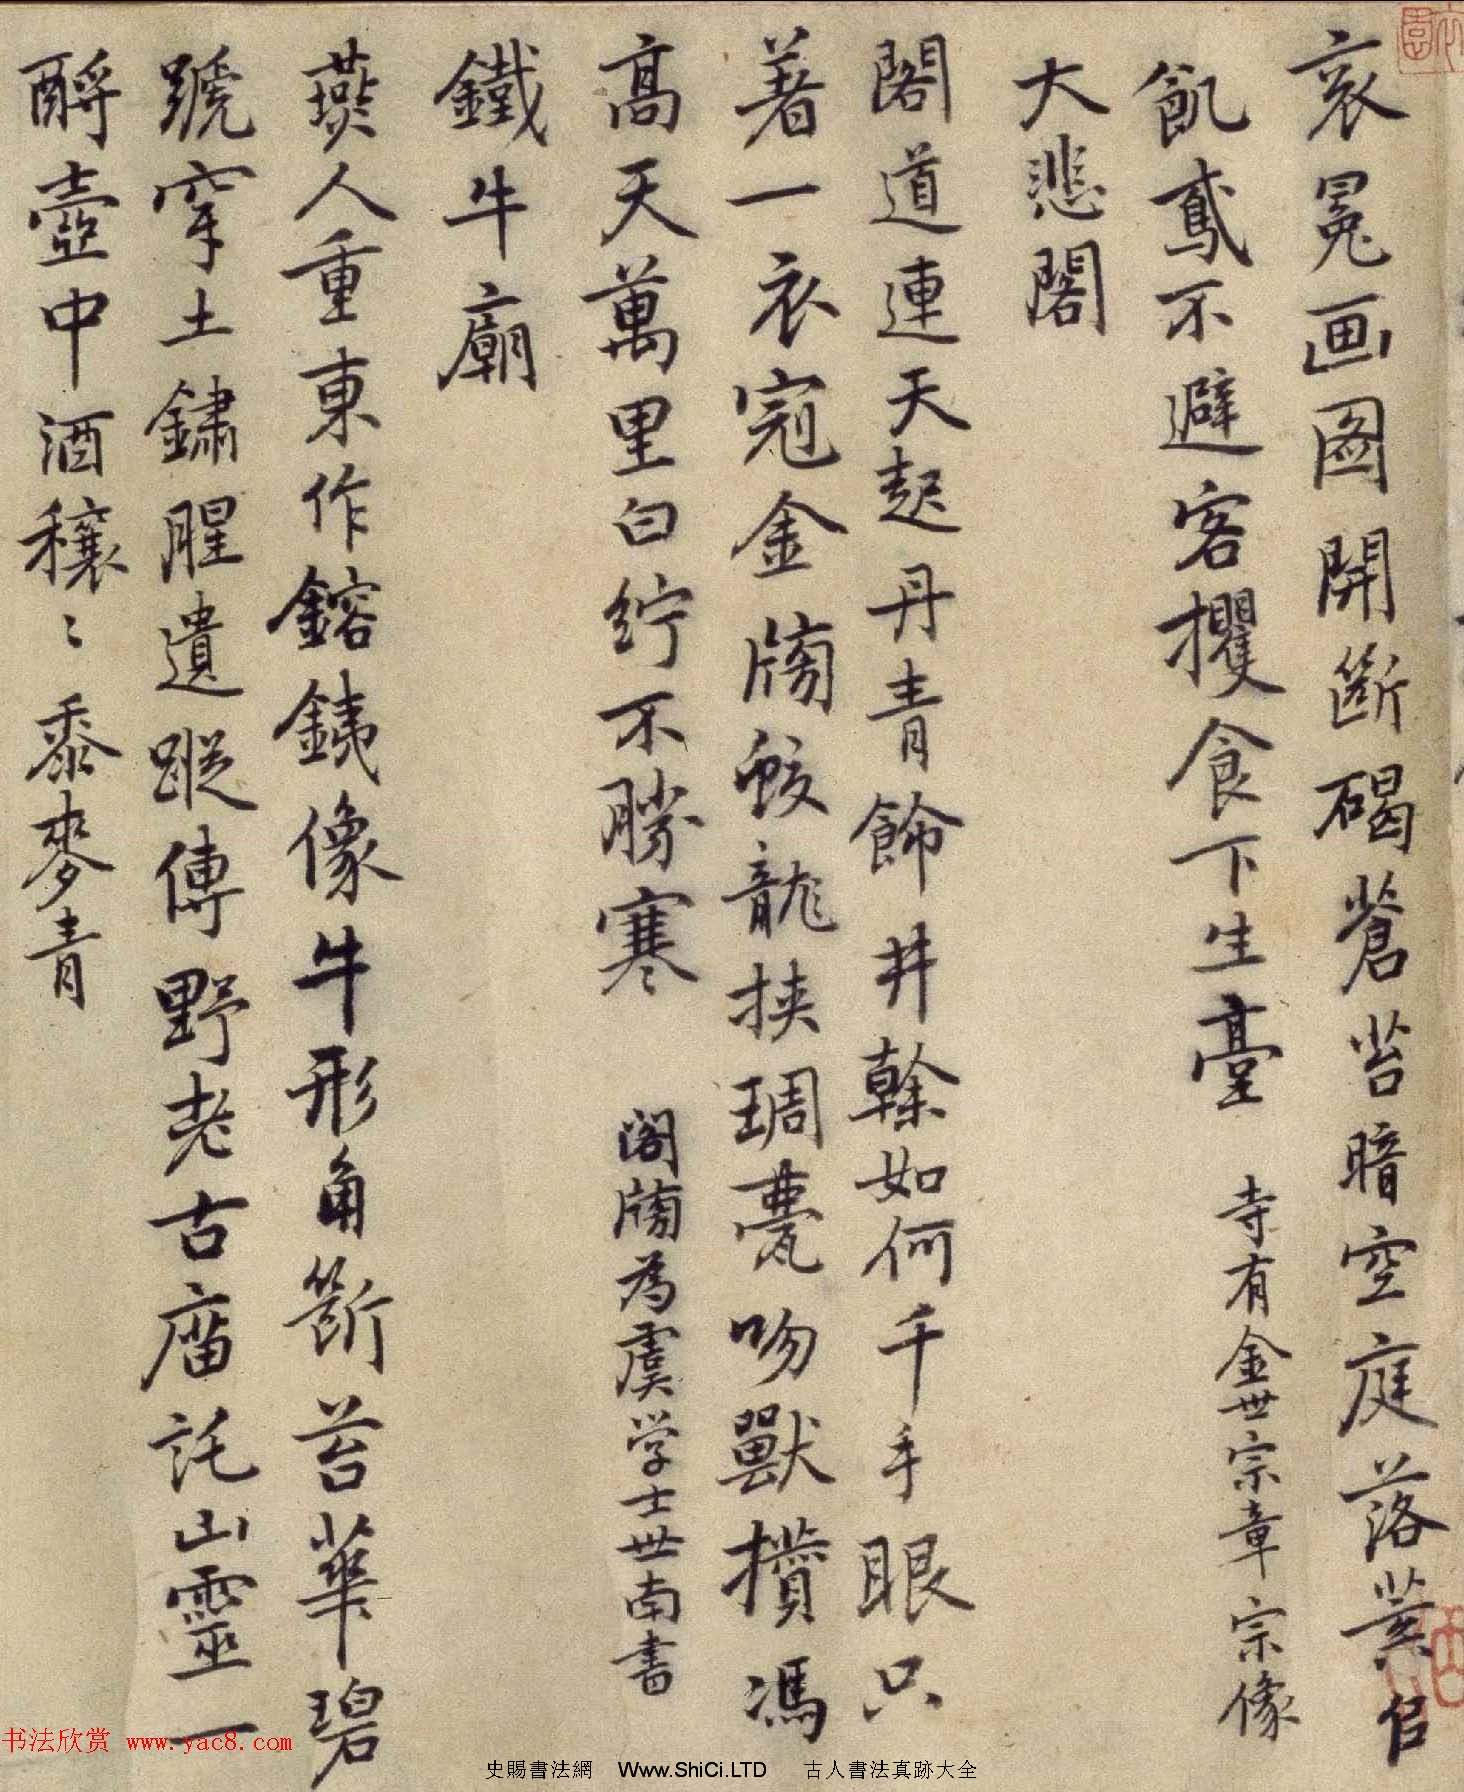 衮冕画图開断碣蒼苔暗空庭落葉台
飢鳶不避客攫食下生臺 寺有金世宗章宗像
大悲閣
閣道連天起丹青飾井榦如何千手眼只
著一衣冠金牓蛟龍挾琱甍吻獸攢馮
高天萬里白紵不勝寒 閣牓為虞学士世南書
鐵牛廟
燕人重東作鎔銕像牛形角斷苔華碧
蹏穿土鏽腥遺蹤傳野老古廟託山靈一
酹壺中酒穰〻黍麥青
书法欣赏 www.yac8.com
史賜書法網 Www.ShiCi.LTD 古人書法真跡大全